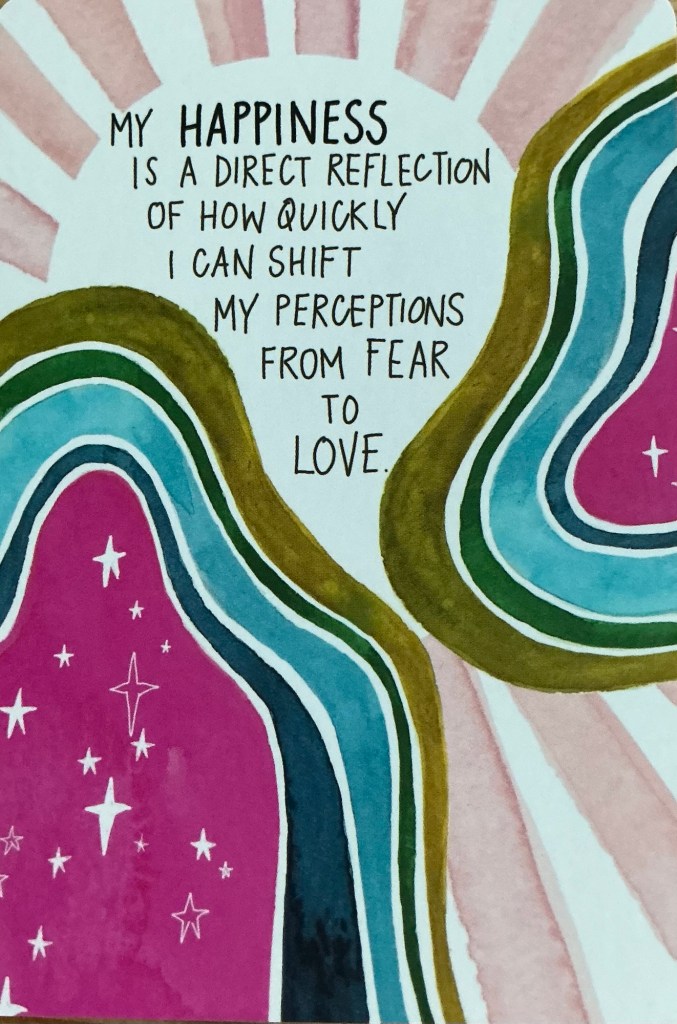 MY HAPPINESS
IS A DIRECT REFLECTION
OF HOW QUICKLY
I CAN SHIFT
MY PERCEPTIONS
FROM FEAR
TO
LOVE.